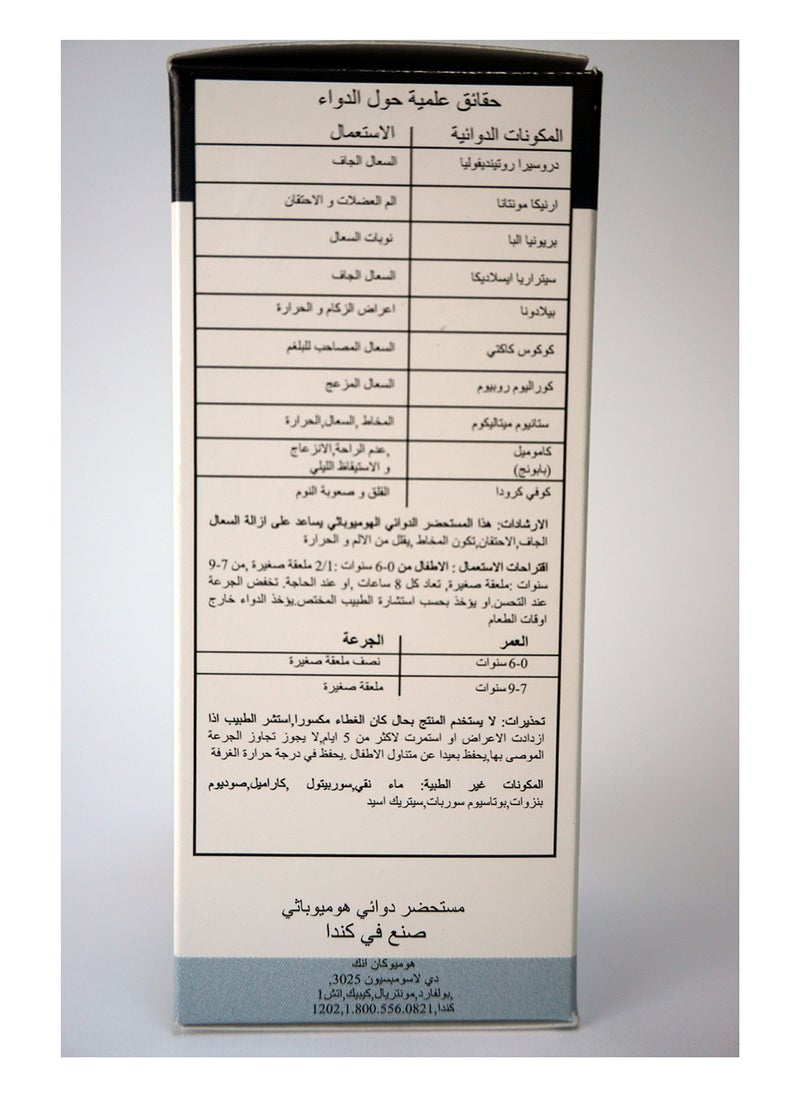 حقائق علمية حول الدواء
المكونات الدوائية الاستعمال
دروسيرا روتينديفوليا السعال الجاف
ارنيكا مونتانا الم العضلات و الاحتقان
بريونيا البا نوبات السعال
سيتراريا ايسلاديكا السعال الجاف
بيلادونا اعراض الزكام و الحرارة
كوكوس كاكتي السعال المصاحب للبلغم
كوراليوم روبيوم السعال المزعج
ستانيوم ميتاليكوم المخاط ,السعال,الحرارة
كاموميل ,عدم الراحة,الانزعاج
(بابونج) و الاستيقاظ الليلي
كوفي كرودا القلق و صعوبة النوم
الارشادات: هذا المستحضر الدوائي الهوميوباثي يساعد على ازالة السعال
الجاف,الاحتقان,تكون المخاط ,يقلل من الالم و الحرارة
اقتراحات الاستعمال : الاطفال من 0-6 سنوات :2/1 ملعقة صغيرة ,من 7-9
سنوات :ملعقة صغيرة, تعاد كل 8 ساعات ,او عند الحاجة. تخفض الجرعة
عند التحسن.او يؤخذ بحسب استشارة الطبيب المختص.يؤخذ الدواء خارج
اوقات الطعام
العمر الجرعة
6-0 سنوات نصف ملعقة صغيرة
9-7 سنوات ملعقة صغيرة
تحذيرات: لا يستخدم المنتج بحال كان الغطاء مكسورا,استشر الطبيب اذا
ازدادت الاعراض او استمرت لاكثر من 5 ايام,لا يجوز تجاوز الجرعة
الموصى بها,يحفظ بعيدا عن متناول الاطفال .يحفظ في درجة حرارة الغرفة
المكونات غير الطبية: ماء نقي,سوربيتول ,كاراميل,صوديوم
بنزوات,بوتاسيوم سوربات,سيتريك اسيد
مستحضر دوائي هوميوباثي
صنع في كندا
هوميوكان انك
دي لاسومبسيون 3025,
,بولفارد,مونتريال,كيبيك,اتش1
كندا,1202,1.800.556.0821